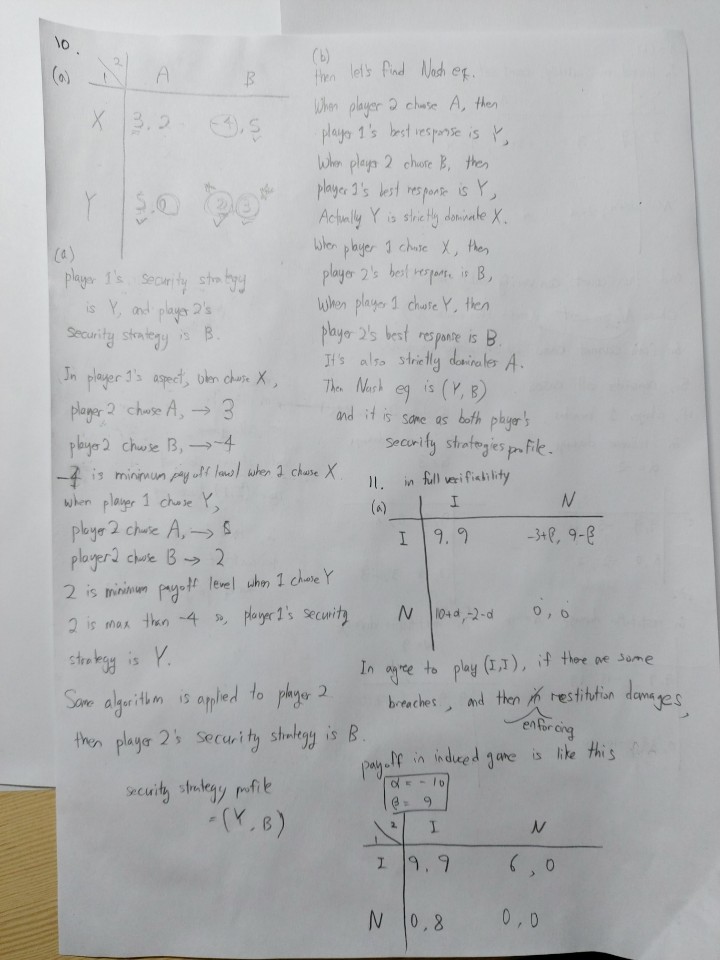 10.
(a)
1 \ 2 A B
X 3, 2 -4, 5
Y 5, 0 2, 3
(a)
player 1's security strategy
is Y, and player 2's
security strategy is B.
In player 1's aspect, when chose X,
player 2 chose A, → 3
player 2 chose B, → -4
-4 is minimum pay off level when 1 chose X
when player 1 chose Y,
player 2 chose A, → 5
player 2 chose B → 2
2 is minimum payoff level when 1 chose Y
2 is max than -4 so, player 1's security
strategy is Y.
Same algorithm is applied to player 2
then player 2's security strategy is B.
security strategy profile
= (Y, B)
(b)
then let's find Nash eq.
When player 2 chose A, then
player 1's best response is Y,
When player 2 chose B, then
player 1's best response is Y,
Actually Y is strictly dominate X.
When player 1 chose X, then
player 2's best response is B,
When player 1 chose Y, then
player 2's best response is B.
It's also strictly dominates A.
Then Nash eq is (Y, B)
and it is same as both player's
security strategies profile.
11. in full verifiability
(a)
I N
I 9, 9 -3+β, 9-β
N 10+α, -2-α 0, 0
In agree to play (I, I), if there are some
breaches, and then restitution damages,
enforcing
payoff in induced game is like this
α = -10
β = 9
1 \ 2 I N
I 9, 9 6, 0
N 0, 8 0, 0